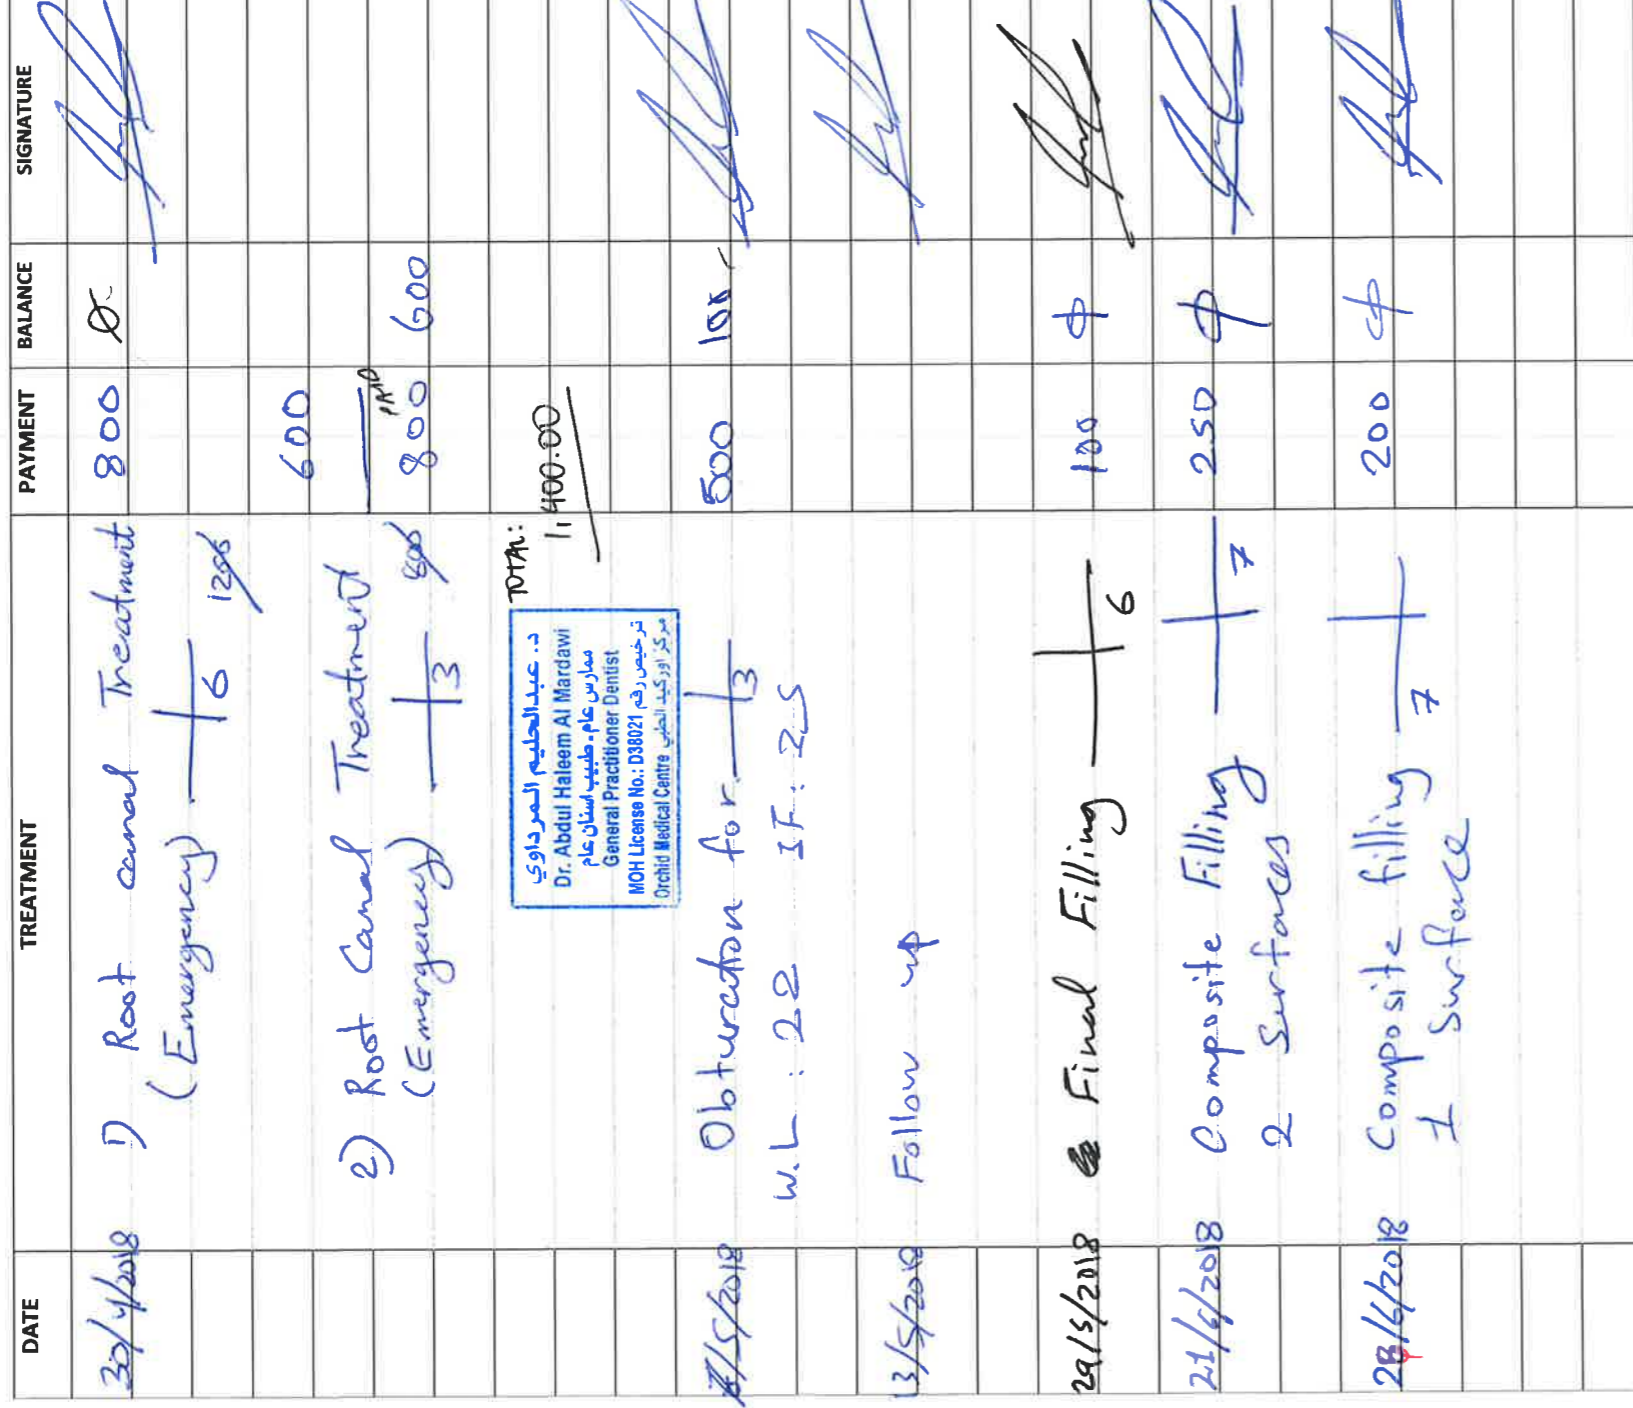 DATE TREATMENT PAYMENT BALANCE SIGNATURE
30/4/2018 1) Root canal Treatment 800 Ø
(Emergency) 6 1200
600
2) Root Canal Treatment PAID
(Emergency) 3 800 800 600
TOTAL:
1,400.00
د. عبدالحليم المرداوي
Dr. Abdul Haleem Al Mardawi
ممارس عام - طبيب اسنان عام
General Practitioner Dentist
MOH License No.: D38021 ترخيص رقم
Orchid Medical Centre مركز اوركيد الطبي
/5/2018 Obturation for 3 500 100
W.L : 22 IF: 25
13/5/2018 Follow up
29/5/2018 Final Filling 6 100 Ø
21/6/2018 Composite Filling 7 250 Ø
2 Surfaces
28/6/2018 Composite filling 7 200 Ø
1 Surface